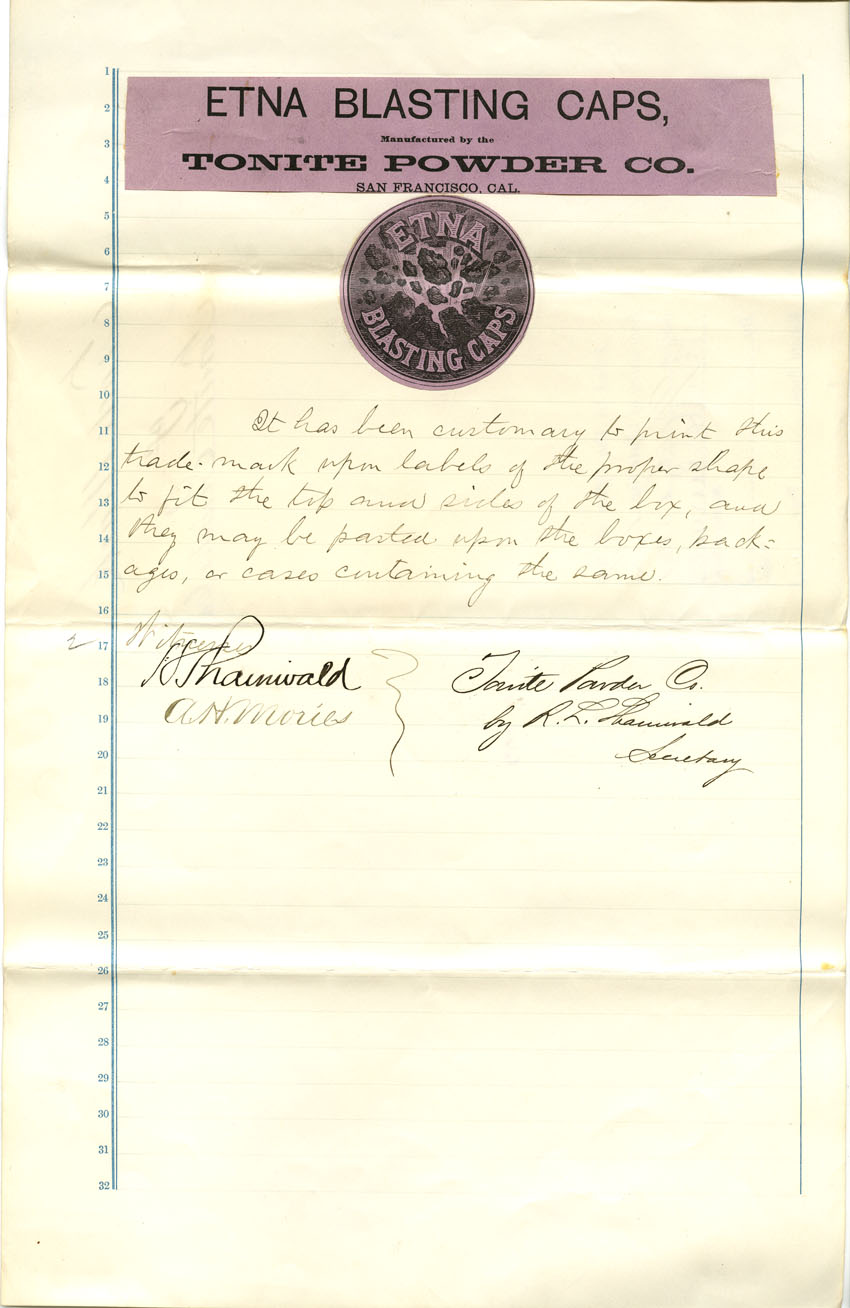 ETNA BLASTING CAPS,
Manufactured by the
TONITE POWDER CO.
SAN FRANCISCO, CAL.
ETNA
BLASTING CAPS
1
2
3
4
5
6
7
8
9
10
11 It has been customary to print this
12 trade-mark upon labels of the proper shape
13 to fit the top and sides of the box, and
14 they may be pasted upon the boxes, pack=
15 ages, or cases containing the same.
16
2 17 Witnesses
18 H. Shainwald Tonite Powder Co.
19 A.H. Mories by R. L. Shainwald
20 Secretary
21
22
23
24
25
26
27
28
29
30
31
32